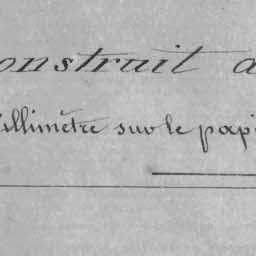 onstruit a
illimètre sur le papi